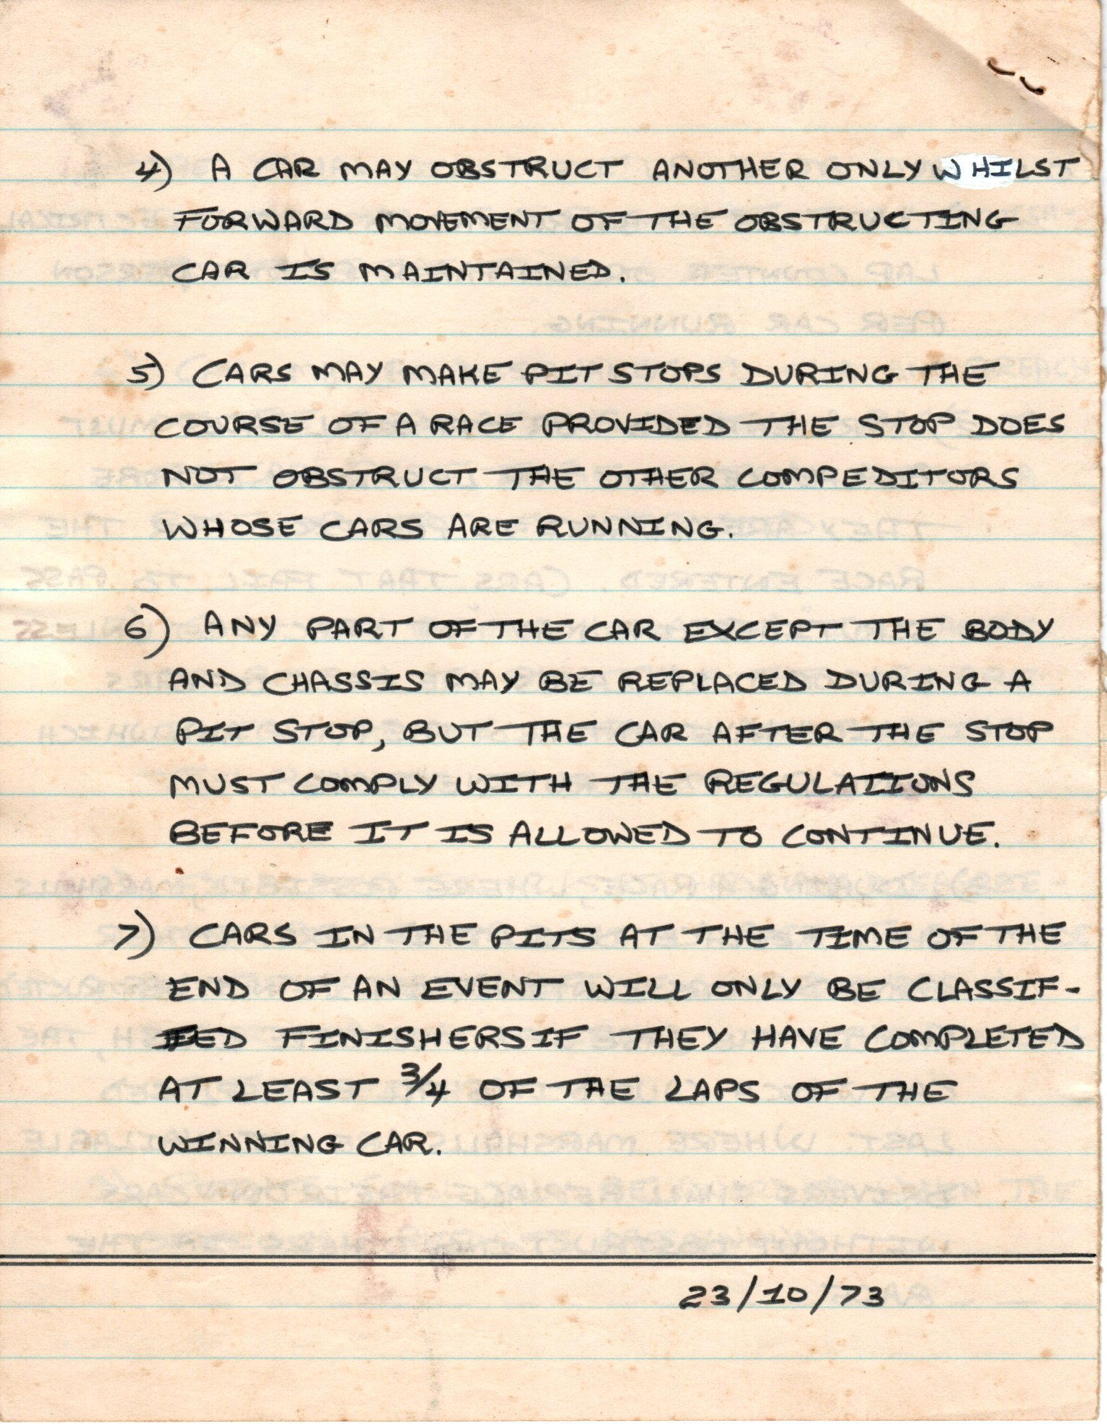 4) A CAR MAY OBSTRUCT ANOTHER ONLY WHILST
FORWARD MOVEMENT OF THE OBSTRUCTING
CAR IS MAINTAINED.
5) CARS MAY MAKE PIT STOPS DURING THE
COURSE OF A RACE PROVIDED THE STOP DOES
NOT OBSTRUCT THE OTHER COMPEDITORS
WHOSE CARS ARE RUNNING.
6) ANY PART OF THE CAR EXCEPT THE BODY
AND CHASSIS MAY BE REPLACED DURING A
PIT STOP, BUT THE CAR AFTER THE STOP
MUST COMPLY WITH THE REGULATIONS
BEFORE IT IS ALLOWED TO CONTINUE.
7) CARS IN THE PITS AT THE TIME OF THE
END OF AN EVENT WILL ONLY BE CLASSIF-
IED FINISHERS IF THEY HAVE COMPLETED
AT LEAST 3/4 OF THE LAPS OF THE
WINNING CAR.
23/10/73